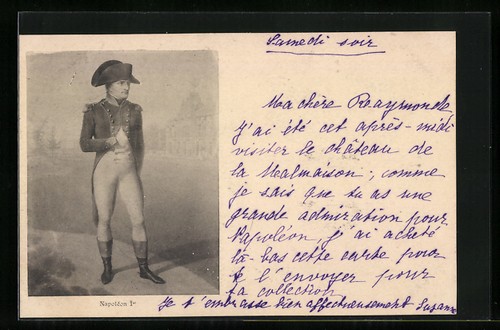 Samedi soir
Ma chère Raymonde
J'ai été cet après-midi
visiter le château de
la Malmaison ; comme
je sais que tu as une
grande admiration pour
Napoléon, j'ai acheté
là-bas cette carte pour
te l'envoyer pour
ta collection
Je t'embrasse bien affectueusement Suzanne
Napoléon Ier